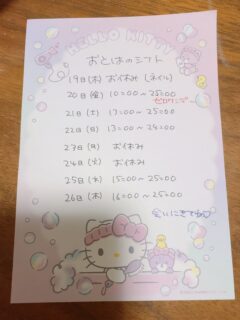 HELLO KITTY
おとはのシフト
19日(木) お休み (ネイル)
20日(金) 10:00~25:00
21日(土) 17:00~25:00
22日(日) 13:00~24:00
23日(月) お休み
24日(火) お休み
25日(水) 15:00~25:00
26日(木) 16:00~25:00
会いにきてね